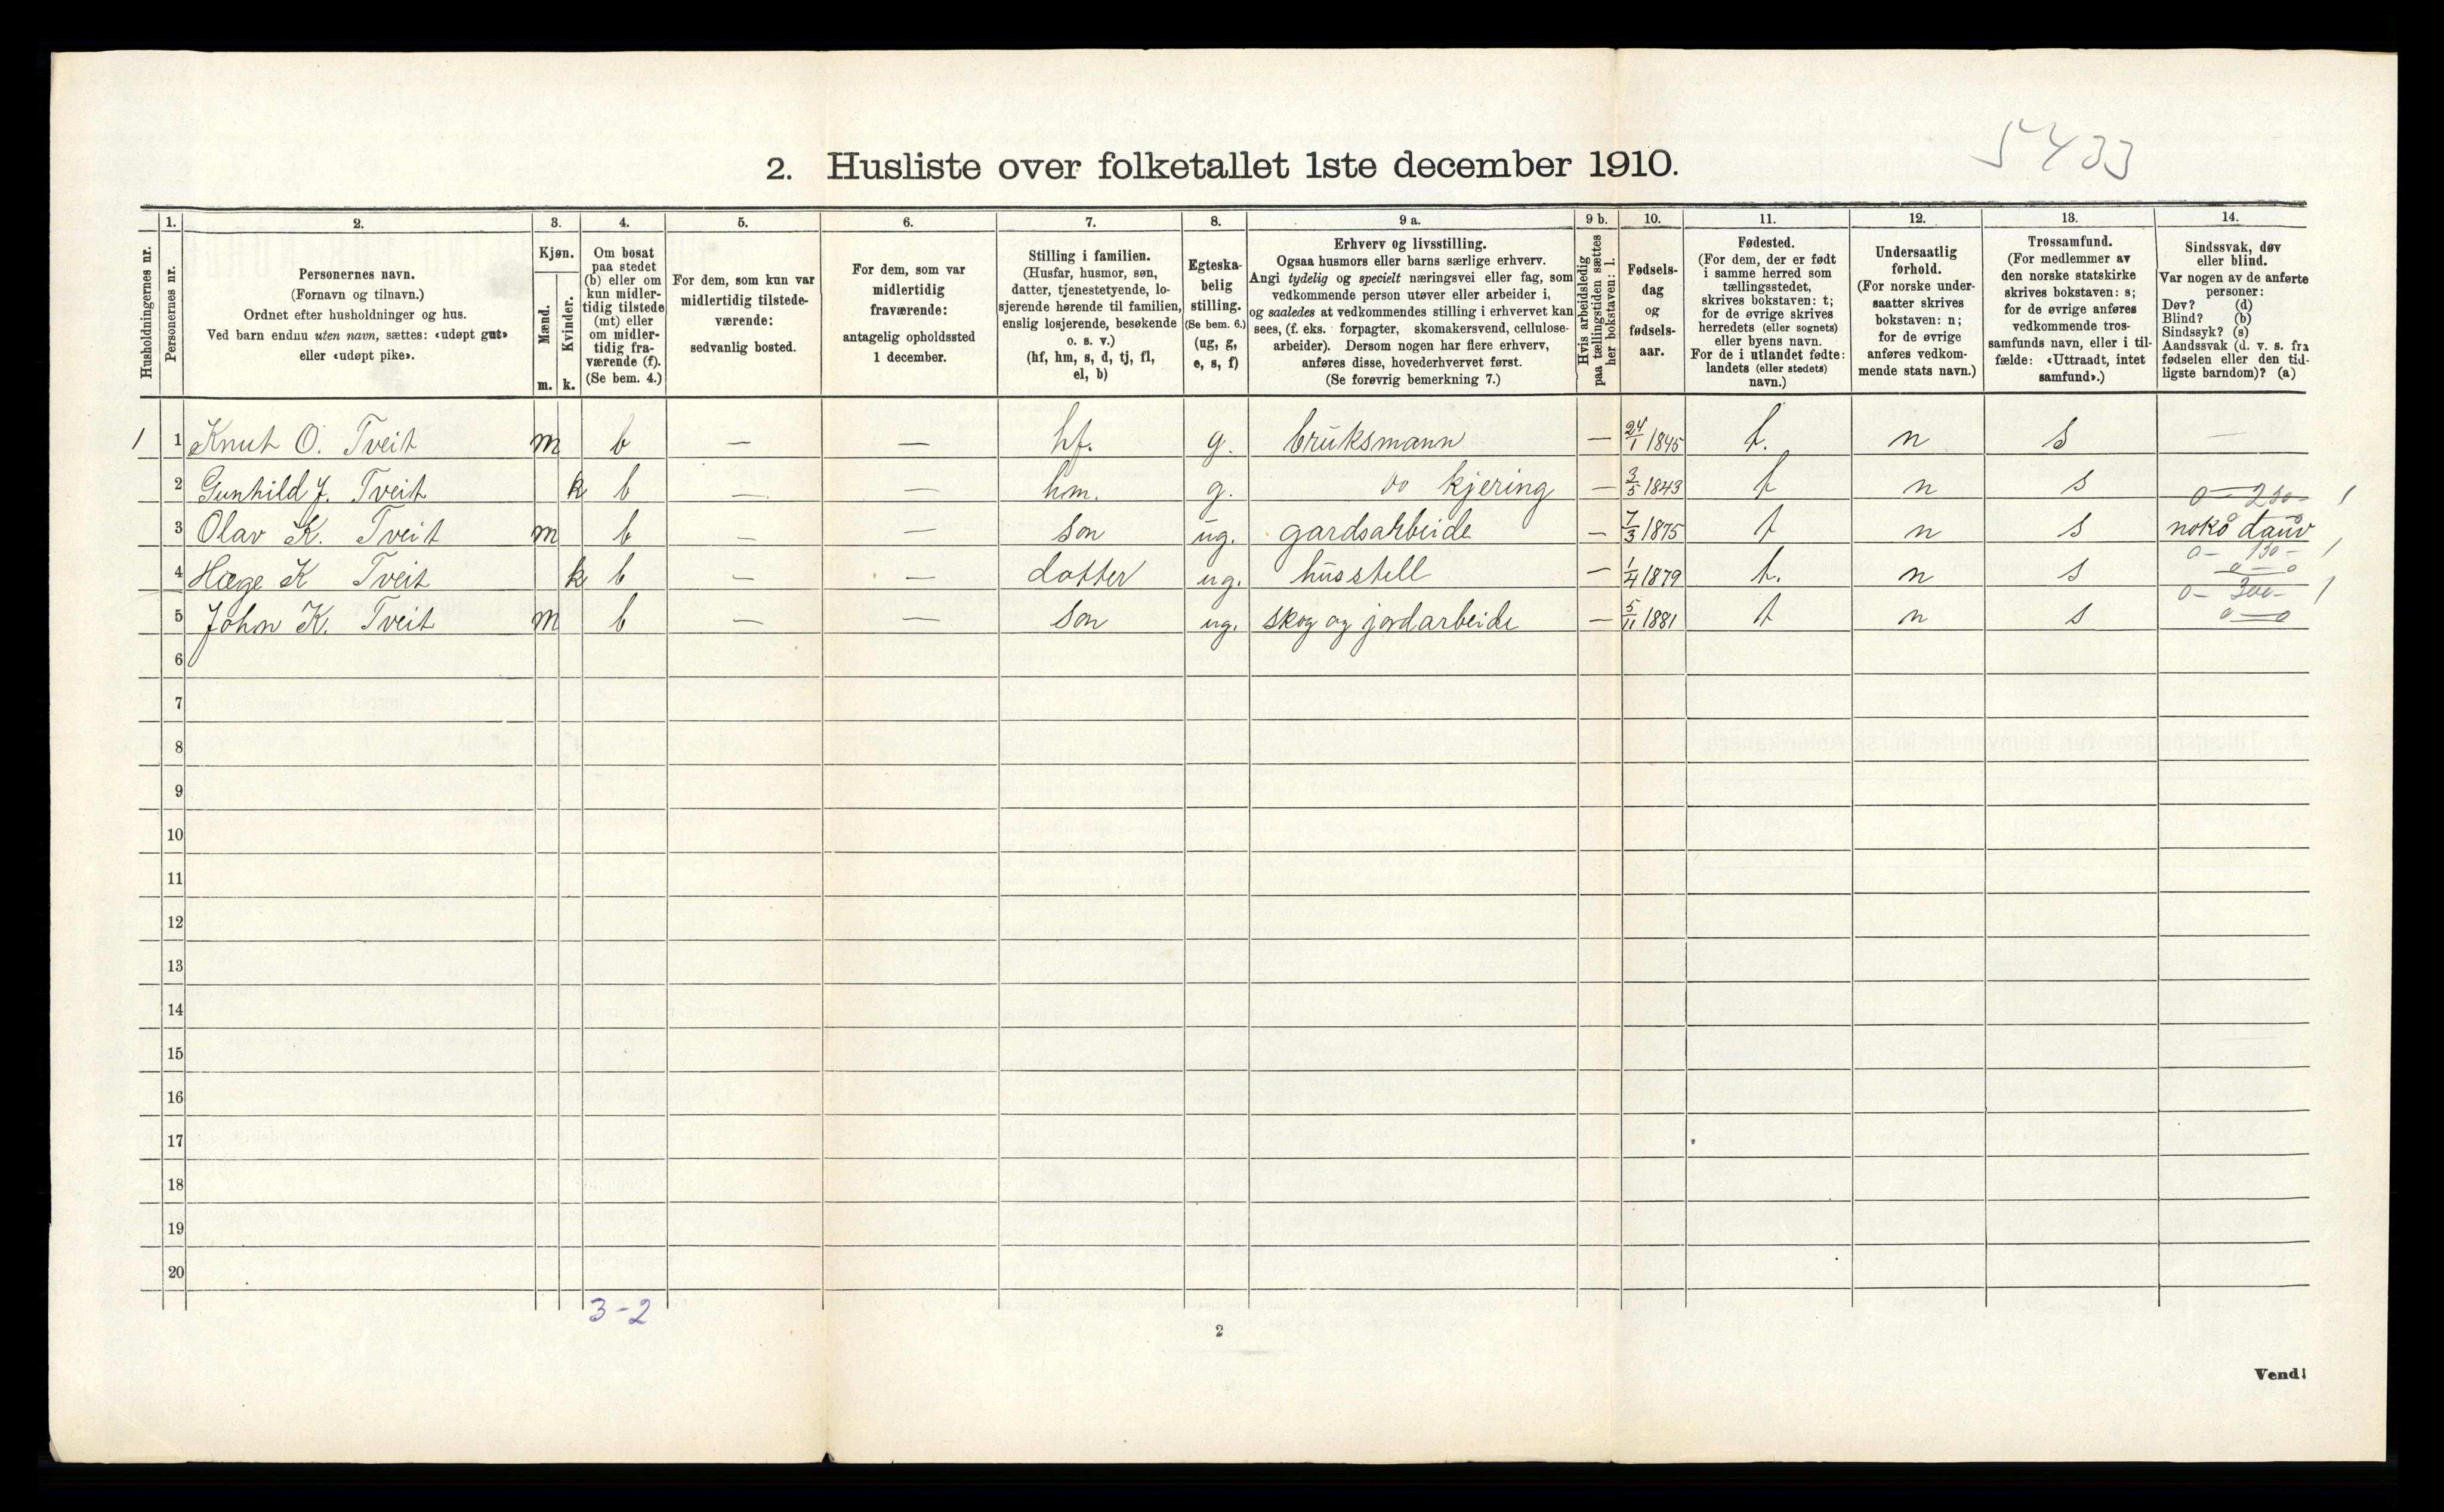 5433
2. Husliste over folketallet 1ste december 1910.
Husholdningernes nr.
1.
Personernes nr.
2.
Personernes navn.
(Fornavn og tilnavn.)
Ordnet efter husholdninger og hus.
Ved barn endnu uten navn, sættes: «udøpt gut»
eller «udøpt pike».
3.
Kjøn.
Mænd.
m.
Kvinder.
k.
4.
Om bosat
paa stedet
(b) eller om
kun midler-
tidig tilstede
(mt) eller
om midler-
tidig fra-
værende (f).
(Se bem. 4.)
5.
For dem, som kun var
midlertidig tilstede-
værende:
sedvanlig bosted.
6.
For dem, som var
midlertidig
fraværende:
antagelig opholdssted
1 december.
7.
Stilling i familien.
(Husfar, husmor, søn,
datter, tjenestetyende, lo-
sjerende hørende til familien,
enslig losjerende, besøkende
o. s. v.)
(hf, hm, s, d, tj, fl,
el, b)
8.
Egteska-
belig
stilling.
(Se bem. 6.)
(ug, g,
e, s, f)
9 a.
Erhverv og livsstilling.
Ogsaa husmors eller barns særlige erhverv.
Angi tydelig og specielt næringsvei eller fag, som
vedkommende person utøver eller arbeider i,
og saaledes at vedkommendes stilling i erhvervet kan
sees, (f. eks. forpagter, skomakersvend, cellulose-
arbeider). Dersom nogen har flere erhverv,
anføres disse, hovederhvervet først.
(Se forøvrig bemerkning 7.)
9 b.
Hvis arbeidsledig
paa tællingstiden sættes
her bokstaven: l.
10.
Fødsels-
dag
og
fødsels-
aar.
11.
Fødested.
(For dem, der er født
i samme herred som
tællingsstedet,
skrives bokstaven: t;
for de øvrige skrives
herredets (eller sognets)
eller byens navn.
For de i utlandet fødte:
landets (eller stedets)
navn.)
12.
Undersaatlig
forhold.
(For norske under-
saatter skrives
bokstaven: n;
for de øvrige
anføres vedkom-
mende stats navn.)
13.
Trossamfund.
(For medlemmer av
den norske statskirke
skrives bokstaven: s;
for de øvrige anføres
vedkommende tros-
samfunds navn, eller i til-
fælde: «Uttraadt, intet
samfund».)
14.
Sindssvak, døv
eller blind.
Var nogen av de anførte
personer:
Døv? (d)
Blind? (b)
Sindssyk? (s)
Aandssvak (d. v. s. fra
fødselen eller den tid-
ligste barndom)? (a)
1 1 Knut O. Tveit m b — — hf. g. bruksmann — 24/1 1845 t. n s —
2 Gunhild J. Tveit k b — — hm. g. do kjering — 3/5 1843 t n s
0 — 250 — 1
3 Olav K. Tveit m b — — son ug. gardsarbeide — 7/3 1875 t n s noko dauv
0 — 130 — 1
4 Hæge K Tveit k b — — dotter ug. husstell — 1/4 1879 t. n s 0 — 0
0 — 300 — 1
5 John K. Tveit m b — — son ug. skog og jordarbeide — 5/11 1881 t n s 0 — 0
6
7
8
9
10
11
12
13
14
15
16
17
18
19
20
3 - 2
2
Vend!